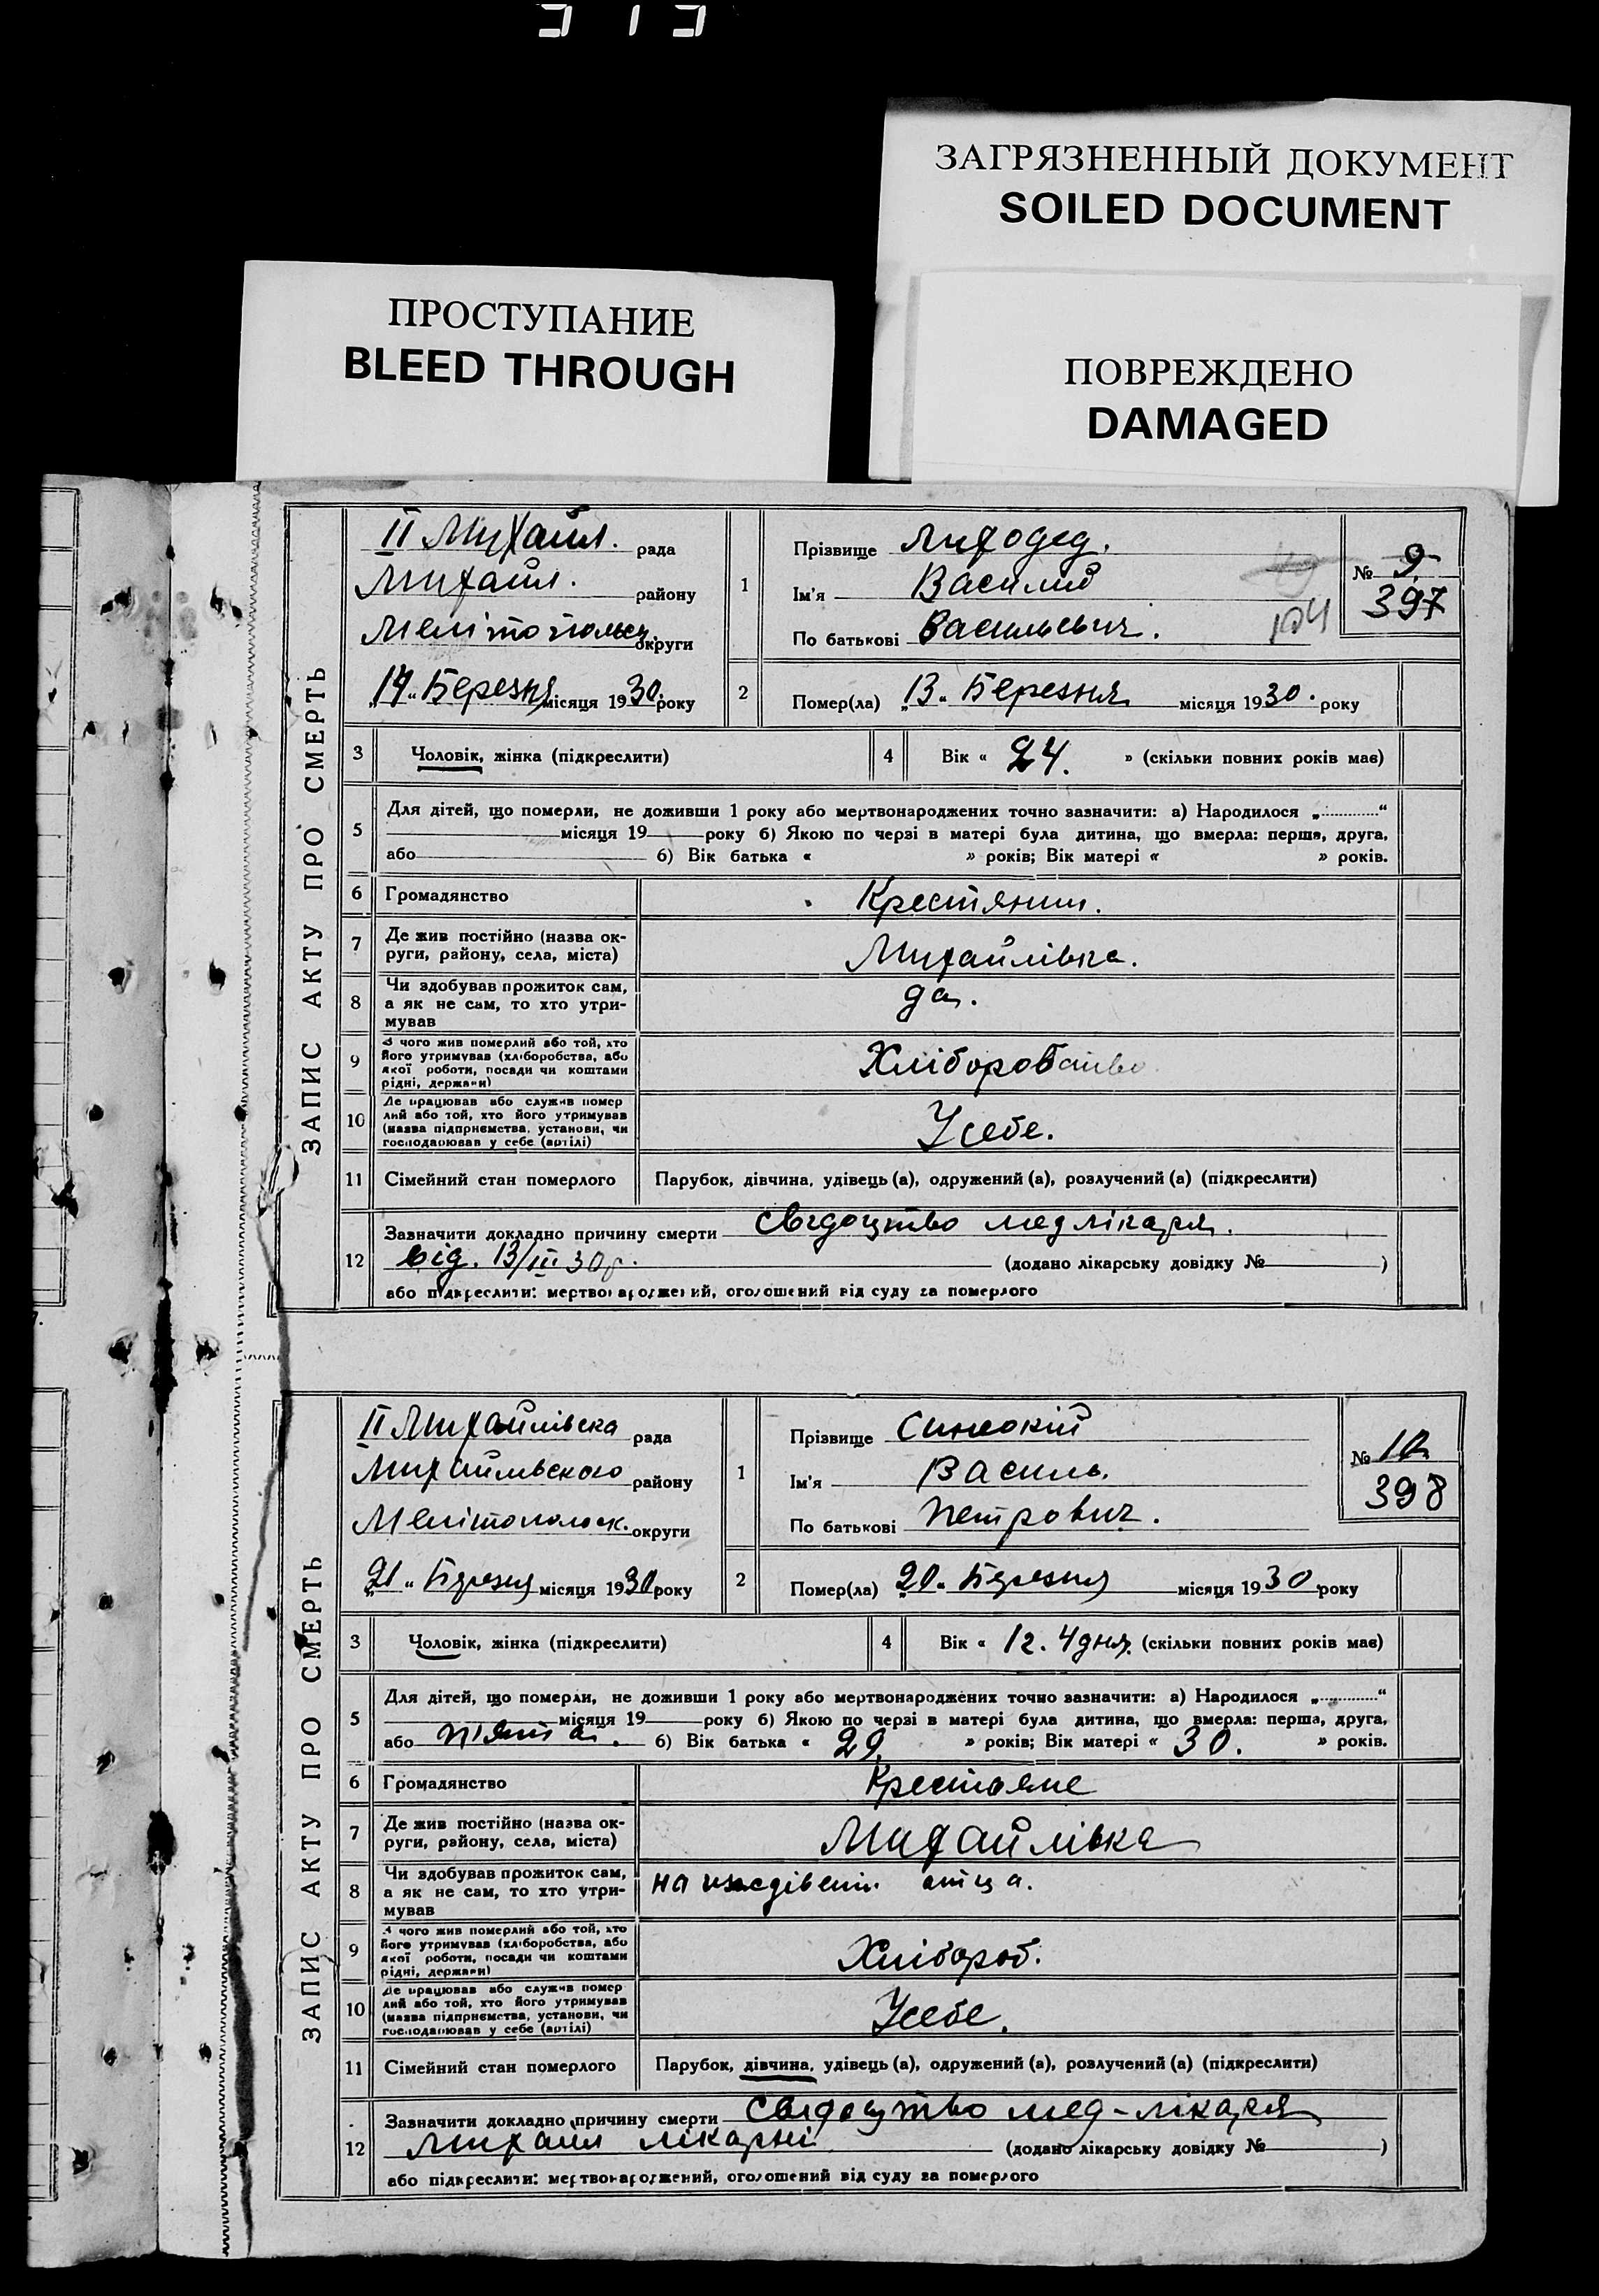 ЗАГРЯЗНЕННЫЙ ДОКУМЕНТ
SOILED DOCUMENT
ПРОСТУПАНИЕ
BLEED THROUGH
ПОВРЕЖДЕНО
DAMAGED
ЗАПИС АКТУ ПРО СМЕРТЬ
II Михайл. рада
Михайл. району
Мелітопольськ. округи
„14“ Березня місяця 1930 року
1
Прізвище Лиходед.
Ім'я Василий
По батькові Васильевич.
№ 9
397
2 Помер(ла) „13“ Березня місяця 1930. року
3 Чоловік, жінка (підкреслити)
4 Вік « 24. » (скільки повних років має)
5 Для дітей, що померли, не доживши 1 року або мертвонароджених точно зазначити: а) Народилося „ “
місяця 19 року б) Якою по черзі в матері була дитина, що вмерла: перша, друга,
або б) Вік батька « » років; Вік матері « » років.
6 Громадянство Крестянин.
7 Де жив постійно (назва ок-
руги, району, села, міста) Михайлівка.
8 Чи здобував прожиток сам,
а як не сам, то хто утри-
мував да.
9 З чого жив померлий або той, хто
його утримував (хліборобства, або
якої роботи, посади чи коштами
рідні, держави) Хліборобство
10 Де працював або служив помер
лий або той, хто його утримував
(назва підприємства, установи, чи
господарював у себе (артілі) Усебе.
11 Сімейний стан померлого Парубок, дівчина, удівець (а), одружений (а), розлучений (а) (підкреслити)
12 Зазначити докладно причину смерти свідоцтво мед лікаря.
від. 13/III 30 р. (додано лікарську довідку № )
або підкреслити: мертвонароджений, оголошений від суду за померлого
ЗАПИС АКТУ ПРО СМЕРТЬ
II Михайлівска рада
Михайлівського району
Мелітопольск. округи
„21“ Березня місяця 1930 року
1
Прізвище Синеокій
Ім'я Василь.
По батькові Петрович.
№ 10
398
2 Помер(ла) „20“ Березня місяця 1930 року
3 Чоловік, жінка (підкреслити)
4 Вік « 12. 4 дня. (скільки повних років має)
5 Для дітей, що померли, не доживши 1 року або мертвонароджених точно зазначити: а) Народилося „ “
місяця 19 року б) Якою по черзі в матері була дитина, що вмерла: перша, друга,
або пята. б) Вік батька « 29. » років; Вік матері « 30. » років.
6 Громадянство Крестяне
7 Де жив постійно (назва ок-
руги, району, села, міста) Михайлівка
8 Чи здобував прожиток сам,
а як не сам, то хто утри-
мував на отца.
9 З чого жив померлий або той, хто
його утримував (хліборобства, або
якої роботи, посади чи коштами
рідні, держави) Хлібороб.
10 Де працював або служив помер
лий або той, хто його утримував
(назва підприємства, установи, чи
господарював у себе (артілі) Усебе.
11 Сімейний стан померлого Парубок, дівчина, удівець (а), одружений (а), розлучений (а) (підкреслити)
12 Зазначити докладно причину смерти свідоцтво мед-лікаря
Михайл лікарні (додано лікарську довідку № )
або підкреслити: мертвонароджений, оголошений від суду за померлого